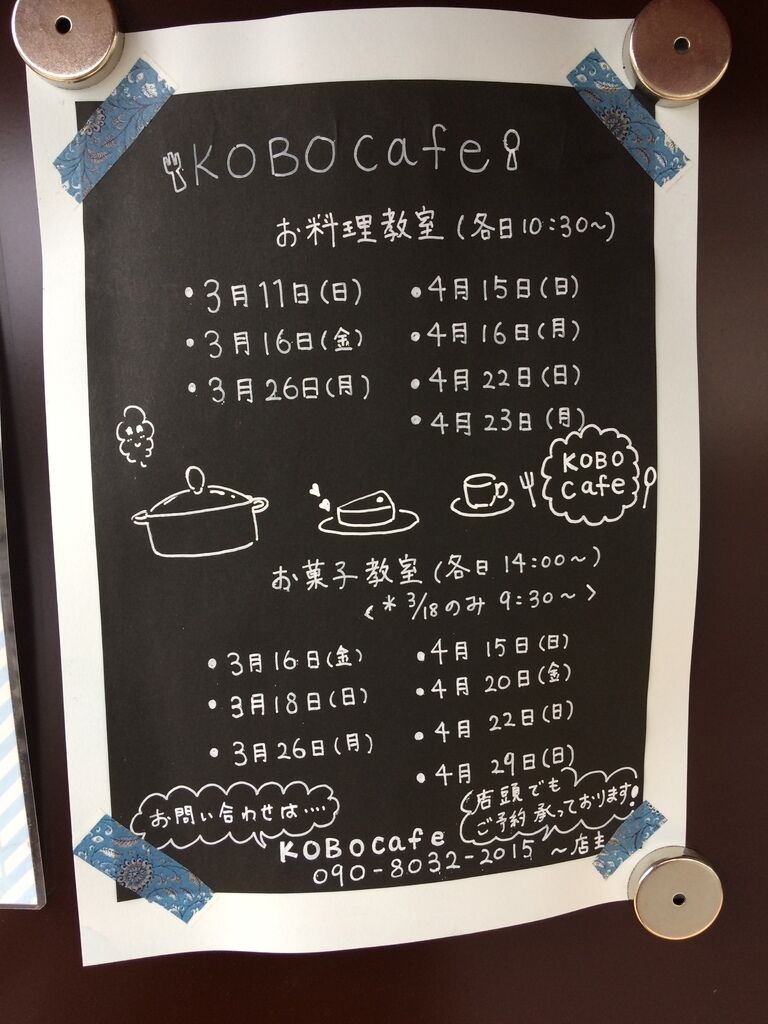 KOBO cafe
お料理教室 (各日10:30~)
・3月11日(日)
・3月16日(金)
・3月26日(月)
・4月15日(日)
・4月16日(月)
・4月22日(日)
・4月23日(月)
KOBO
cafe
お菓子教室 (各日 14:00~)
<* 3/18のみ 9:30~>
・3月16日(金)
・3月18日(日)
・3月26日(月)
・4月15日(日)
・4月20日(金)
・4月22日(日)
・4月29日(日)
お問い合わせは....
店頭でも
ご予約承っております!
KOBO cafe
090-8032-2015 ~店主